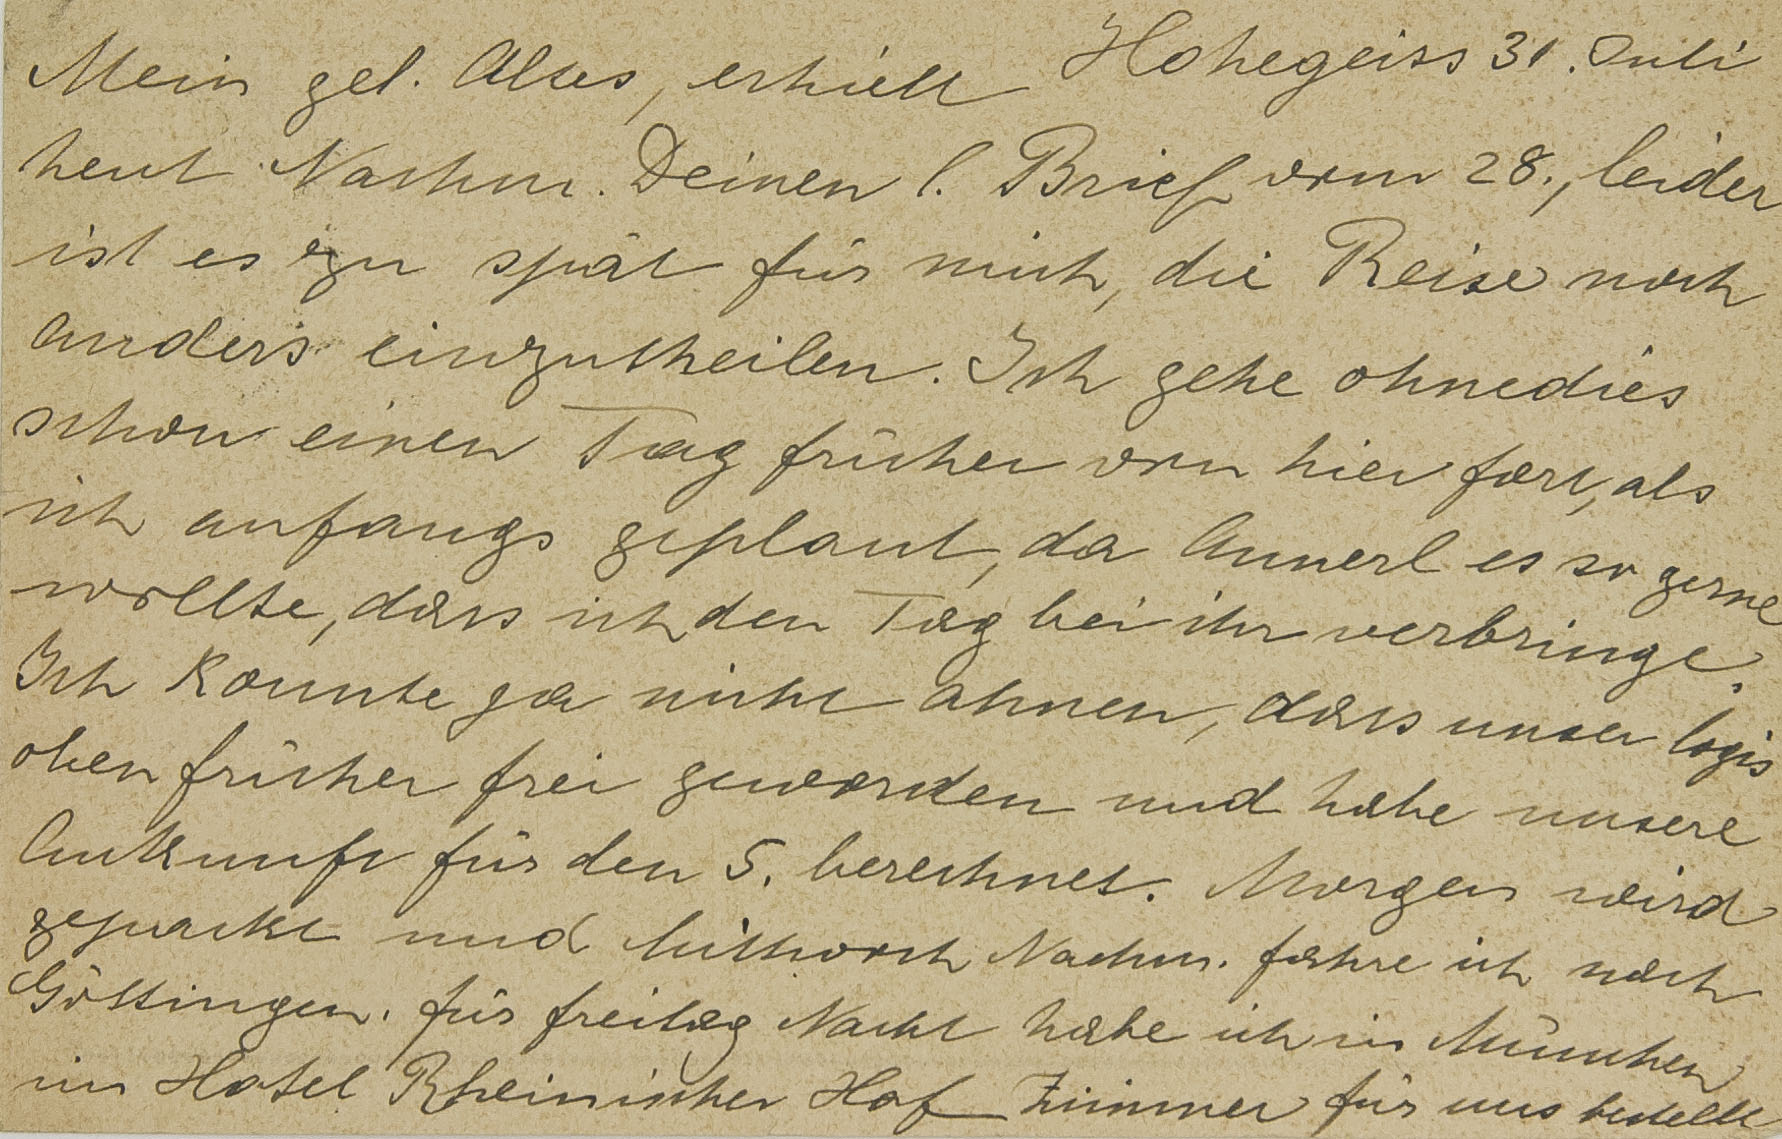 Hohegeiss 31. Juli
Mein gel. Altes, erhielt
heut Nachm. Deinen l. Brief vom 28., leider
ist es zu spät für mich, die Reise noch
anders einzutheilen. Ich gehe ohnedies
schon einen Tag früher von hier fort, als
ich anfangs geplant, da Annerl es so gerne
wollte, dass ich den Tag bei ihr verbringe.
Ich konnte ja nicht ahnen, dass unser logis
oben früher frei geworden und habe unsere
Ankunft für den 5. berechnet. Morgen wird
gepackt und Mittwoch Nachm. fahre ich nach
Göttingen. für freitag Nacht habe ich in München
im Hotel Rheinischer Hof Zimmer für uns bestellt